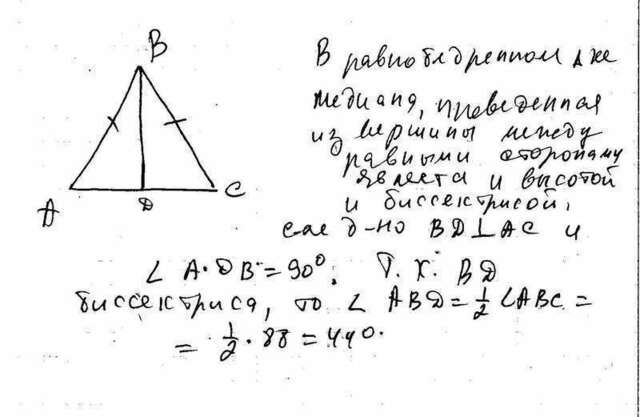 B
A
D
C
В равнобедренном Δ-ке
медиана, проведенная
из вершины между
равными сторонами
является и высотой
и биссектрисой,
след-но BD⊥AC и
∠ ADB = 90°. Т.к. BD
биссектриса, то ∠ ABD = ½ ∠ABC =
= ½ · 88 = 44°.